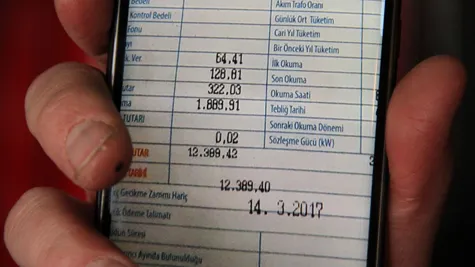 Bedeli
Akım Trafo Oranı
Kontrol Bedeli
Günlük Ort Tüketim
Fonu
Cari Yıl Tüketim
Bir Önceki Yıl Tüketim
Ver.
64,41
İlk Okuma
128,81
Son Okuma
322,03
Okuma Saati
1.889,91
Tebliğ Tarihi
TUTARI
Sonraki Okuma Dönemi
0,02
Sözleşme Gücü (kW)
12.389,42
Gecikme Zammı Hariç
12.389,40
Ödeme Talimatı
14. 3.2017
Süresi
Ayında Bulunulduğu